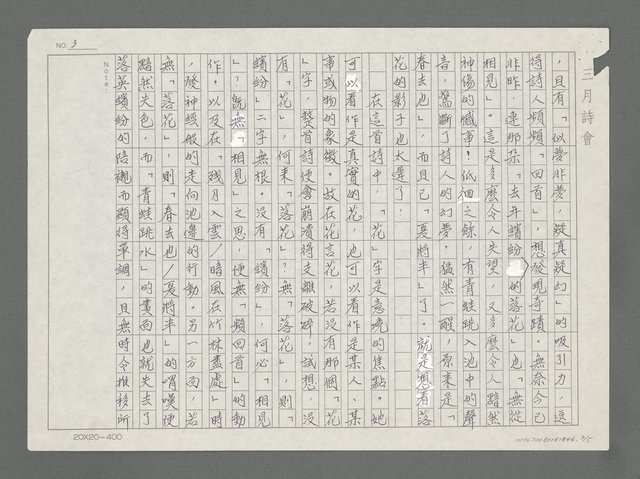 三月詩會
NO. 3
Note:
，且有「似夢非夢，疑真疑幻」的吸引力，逗
得詩人頻頻「回首」，想發現奇蹟。無奈今已
非昨，連那朵「去年繽紛的落花」也「無從
相見」。這是多麼令人失望，又多麼令人黯然
神傷的憾事。低徊之餘，有青蛙跳入池中的聲
音，驚斷了詩人的幻夢。猛然一醒，原來是「
春去也」，而且已「夏將半」了。就是想看落
花的影子也太遲了！
在這首詩中，「花」字是意境的焦點。她
可以看作是真實的花，也可以看作是某人、某
事或物的象徵。故在花言花，若沒有那個「花
」字，整首詩便會崩潰得支離破碎。試想，沒
有「花」，何來「落花」？無「落花」，則「
繽紛」二字無根。沒有「繽紛」，何必「相見
」？既無「相見」之思，便無「頻回首」的動
作。以及在「殘月入雲/暗風在竹林盡處」時
，發神經般的走向池邊的行動。另一方面，若
無「落花」，則「春去也/夏將半」的喟嘆便
黯然失色，而「青蛙跳水」的畫面也就失去了
落英繽紛的陪襯而顯得單調，且無時令推移所
20X20=400